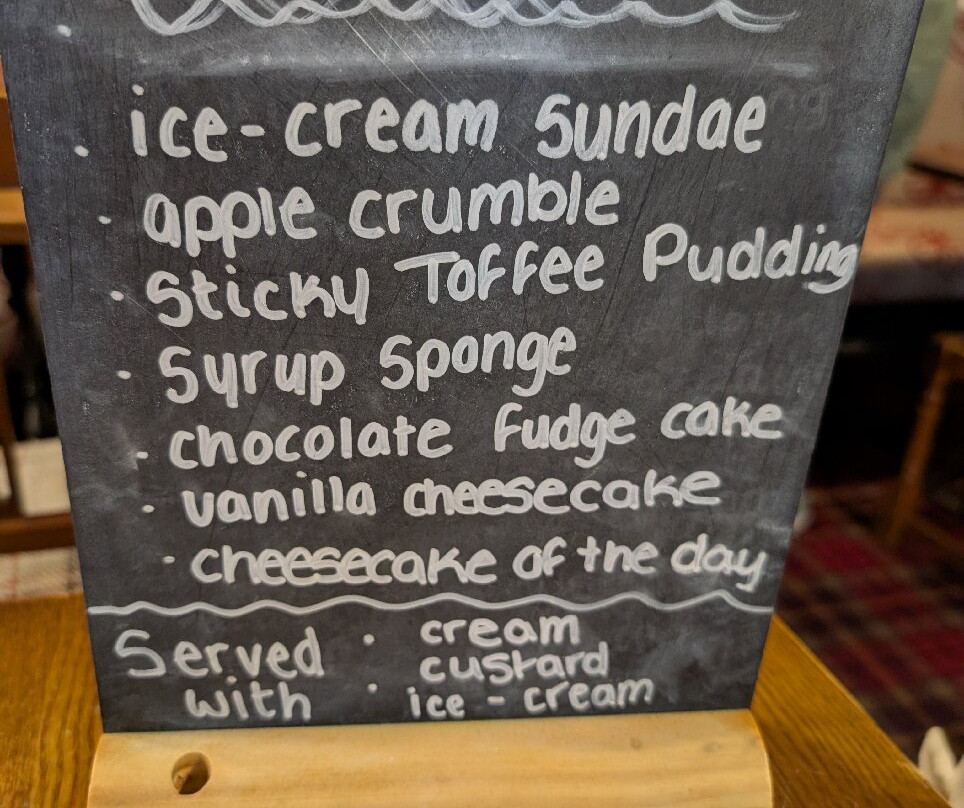 · ice-cream Sundae
· apple crumble
· Sticky Toffee Pudding
· Syrup Sponge
· chocolate fudge cake
· vanilla cheesecake
· cheesecake of the day
Served · cream
custard
with · ice-cream